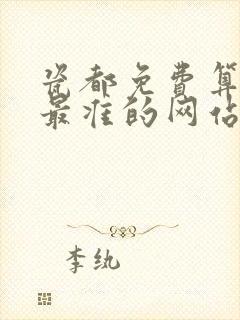 瓷都免费算
最准的网站
李纨